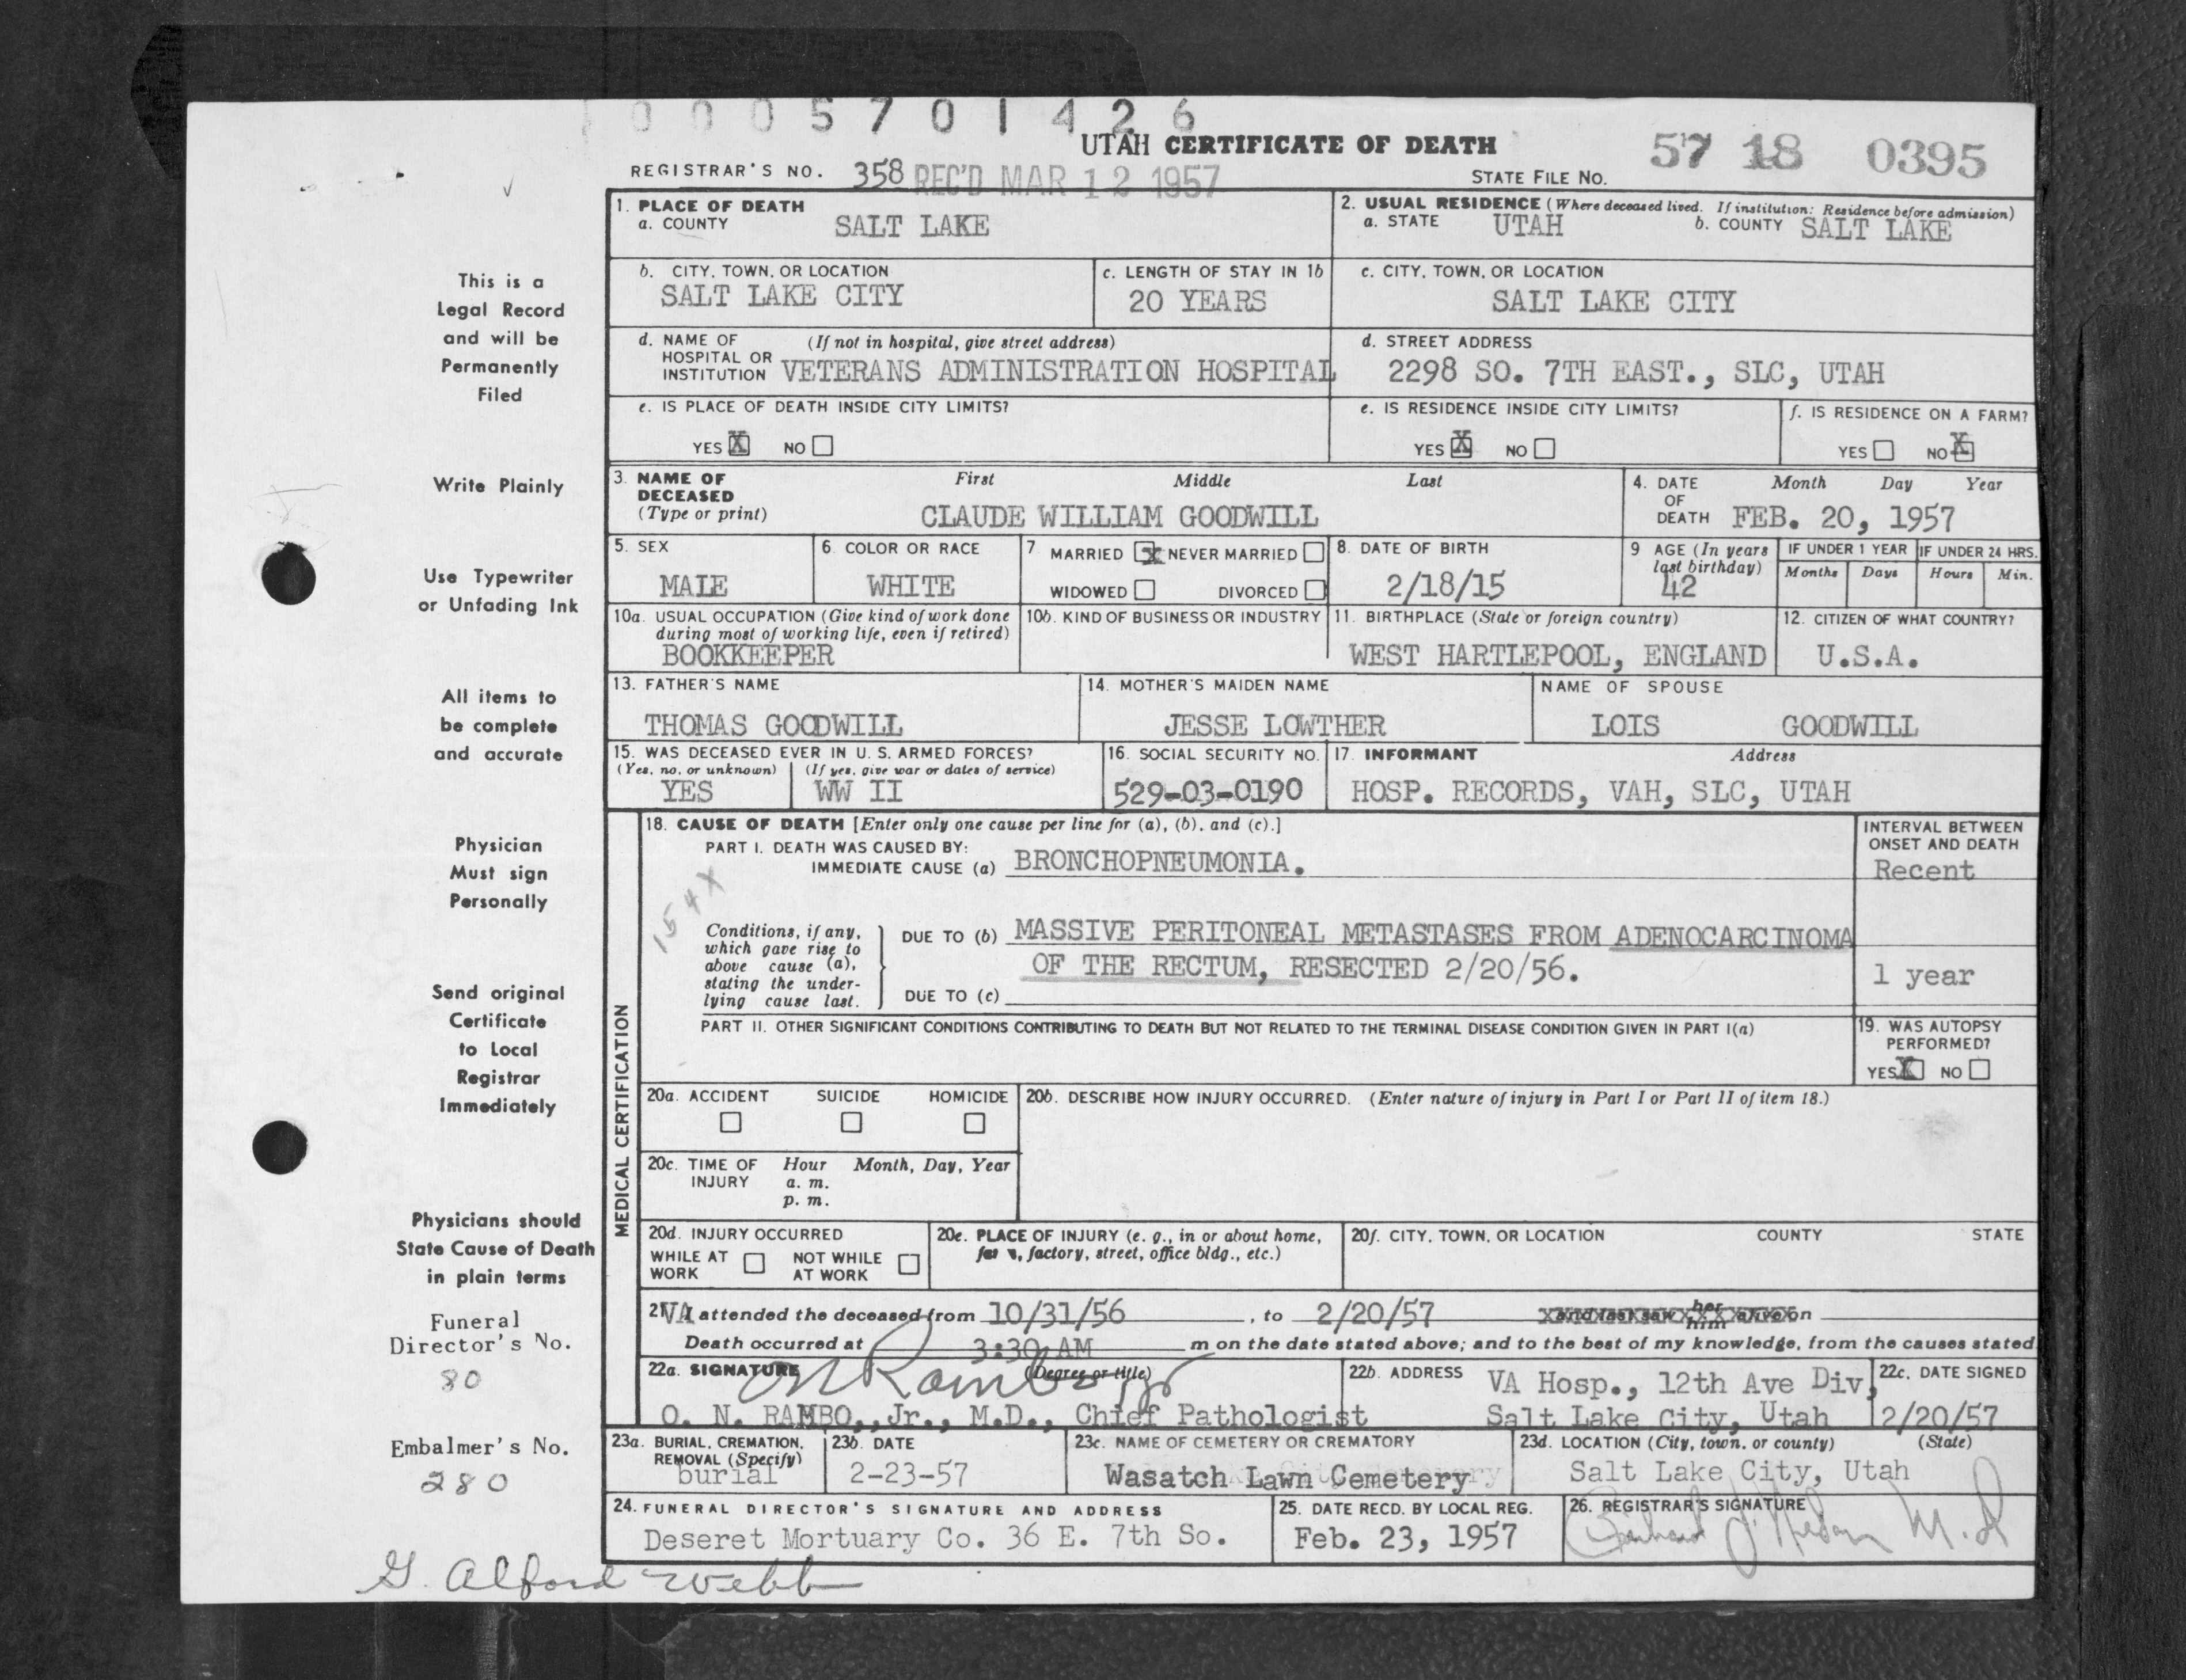 0005701426
UTAH CERTIFICATE OF DEATH
57 18 0395
REGISTRAR'S NO. 358 REC'D MAR 12 1957
STATE FILE NO.
1. PLACE OF DEATH
a. COUNTY SALT LAKE
2. USUAL RESIDENCE (Where deceased lived. If institution: Residence before admission)
a. STATE UTAH b. COUNTY SALT LAKE
This is a
Legal Record
and will be
Permanently
Filed
b. CITY, TOWN, OR LOCATION
SALT LAKE CITY
c. LENGTH OF STAY IN 1b
20 YEARS
c. CITY, TOWN, OR LOCATION
SALT LAKE CITY
d. NAME OF (If not in hospital, give street address)
HOSPITAL OR
INSTITUTION VETERANS ADMINISTRATION HOSPITAL
d. STREET ADDRESS
2298 SO. 7TH EAST., SLC, UTAH
e. IS PLACE OF DEATH INSIDE CITY LIMITS?
YES X NO
e. IS RESIDENCE INSIDE CITY LIMITS?
YES X NO
f. IS RESIDENCE ON A FARM?
YES NO X
Write Plainly
3. NAME OF
DECEASED
(Type or print)
First Middle Last
CLAUDE WILLIAM GOODWILL
4. DATE Month Day Year
OF
DEATH FEB. 20, 1957
Use Typewriter
or Unfading Ink
5. SEX
MALE
6. COLOR OR RACE
WHITE
7. MARRIED X NEVER MARRIED
WIDOWED DIVORCED
8. DATE OF BIRTH
2/18/15
9 AGE (In years
last birthday)
42
IF UNDER 1 YEAR
Months Days
IF UNDER 24 HRS.
Hours Min.
10a. USUAL OCCUPATION (Give kind of work done
during most of working life, even if retired)
BOOKKEEPER
10b. KIND OF BUSINESS OR INDUSTRY
11. BIRTHPLACE (State or foreign country)
WEST HARTLEPOOL, ENGLAND
12. CITIZEN OF WHAT COUNTRY?
U.S.A.
All items to
be complete
and accurate
13. FATHER'S NAME
THOMAS GOODWILL
14. MOTHER'S MAIDEN NAME
JESSE LOWTHER
NAME OF SPOUSE
LOIS GOODWILL
15. WAS DECEASED EVER IN U. S. ARMED FORCES?
(Yes, no, or unknown) (If yes, give war or dates of service)
YES WW II
16. SOCIAL SECURITY NO.
529-03-0190
17. INFORMANT Address
HOSP. RECORDS, VAH, SLC, UTAH
Physician
Must sign
Personally
MEDICAL CERTIFICATION
18. CAUSE OF DEATH [Enter only one cause per line for (a), (b), and (c).]
PART I. DEATH WAS CAUSED BY:
IMMEDIATE CAUSE (a) BRONCHOPNEUMONIA.
INTERVAL BETWEEN
ONSET AND DEATH
Recent
154X
Conditions, if any,
which gave rise to
above cause (a),
stating the under-
lying cause last.
DUE TO (b) MASSIVE PERITONEAL METASTASES FROM ADENOCARCINOMA
OF THE RECTUM, RESECTED 2/20/56.
1 year
DUE TO (c)
Send original
Certificate
to Local
Registrar
Immediately
PART II. OTHER SIGNIFICANT CONDITIONS CONTRIBUTING TO DEATH BUT NOT RELATED TO THE TERMINAL DISEASE CONDITION GIVEN IN PART I(a)
19. WAS AUTOPSY
PERFORMED?
YES X NO
20a. ACCIDENT SUICIDE HOMICIDE
20b. DESCRIBE HOW INJURY OCCURRED. (Enter nature of injury in Part I or Part II of item 18.)
20c. TIME OF Hour Month, Day, Year
INJURY a. m.
p. m.
Physicians should
State Cause of Death
in plain terms
20d. INJURY OCCURRED
WHILE AT NOT WHILE
WORK AT WORK
20e. PLACE OF INJURY (e. g., in or about home,
factory, street, office bldg., etc.)
20f. CITY, TOWN, OR LOCATION COUNTY STATE
Funeral
Director's No.
80
21 VA attended the deceased from 10/31/56, to 2/20/57 and last saw her him alive on
Death occurred at 3:30 AM m on the date stated above; and to the best of my knowledge, from the causes stated
22a. SIGNATURE (Degree or title)
O N Rambo Jr
O. N. RAMBO, Jr., M.D., Chief Pathologist
22b. ADDRESS VA Hosp., 12th Ave Div,
Salt Lake City, Utah
22c. DATE SIGNED
2/20/57
Embalmer's No.
280
23a. BURIAL, CREMATION,
REMOVAL (Specify)
burial
23b. DATE
2-23-57
23c. NAME OF CEMETERY OR CREMATORY
Wasatch Lawn Cemetery
23d. LOCATION (City, town, or county) (State)
Salt Lake City, Utah
24. FUNERAL DIRECTOR'S SIGNATURE AND ADDRESS
Deseret Mortuary Co. 36 E. 7th So.
25. DATE RECD. BY LOCAL REG.
Feb. 23, 1957
26. REGISTRAR'S SIGNATURE
M.D
G. Alford Webb